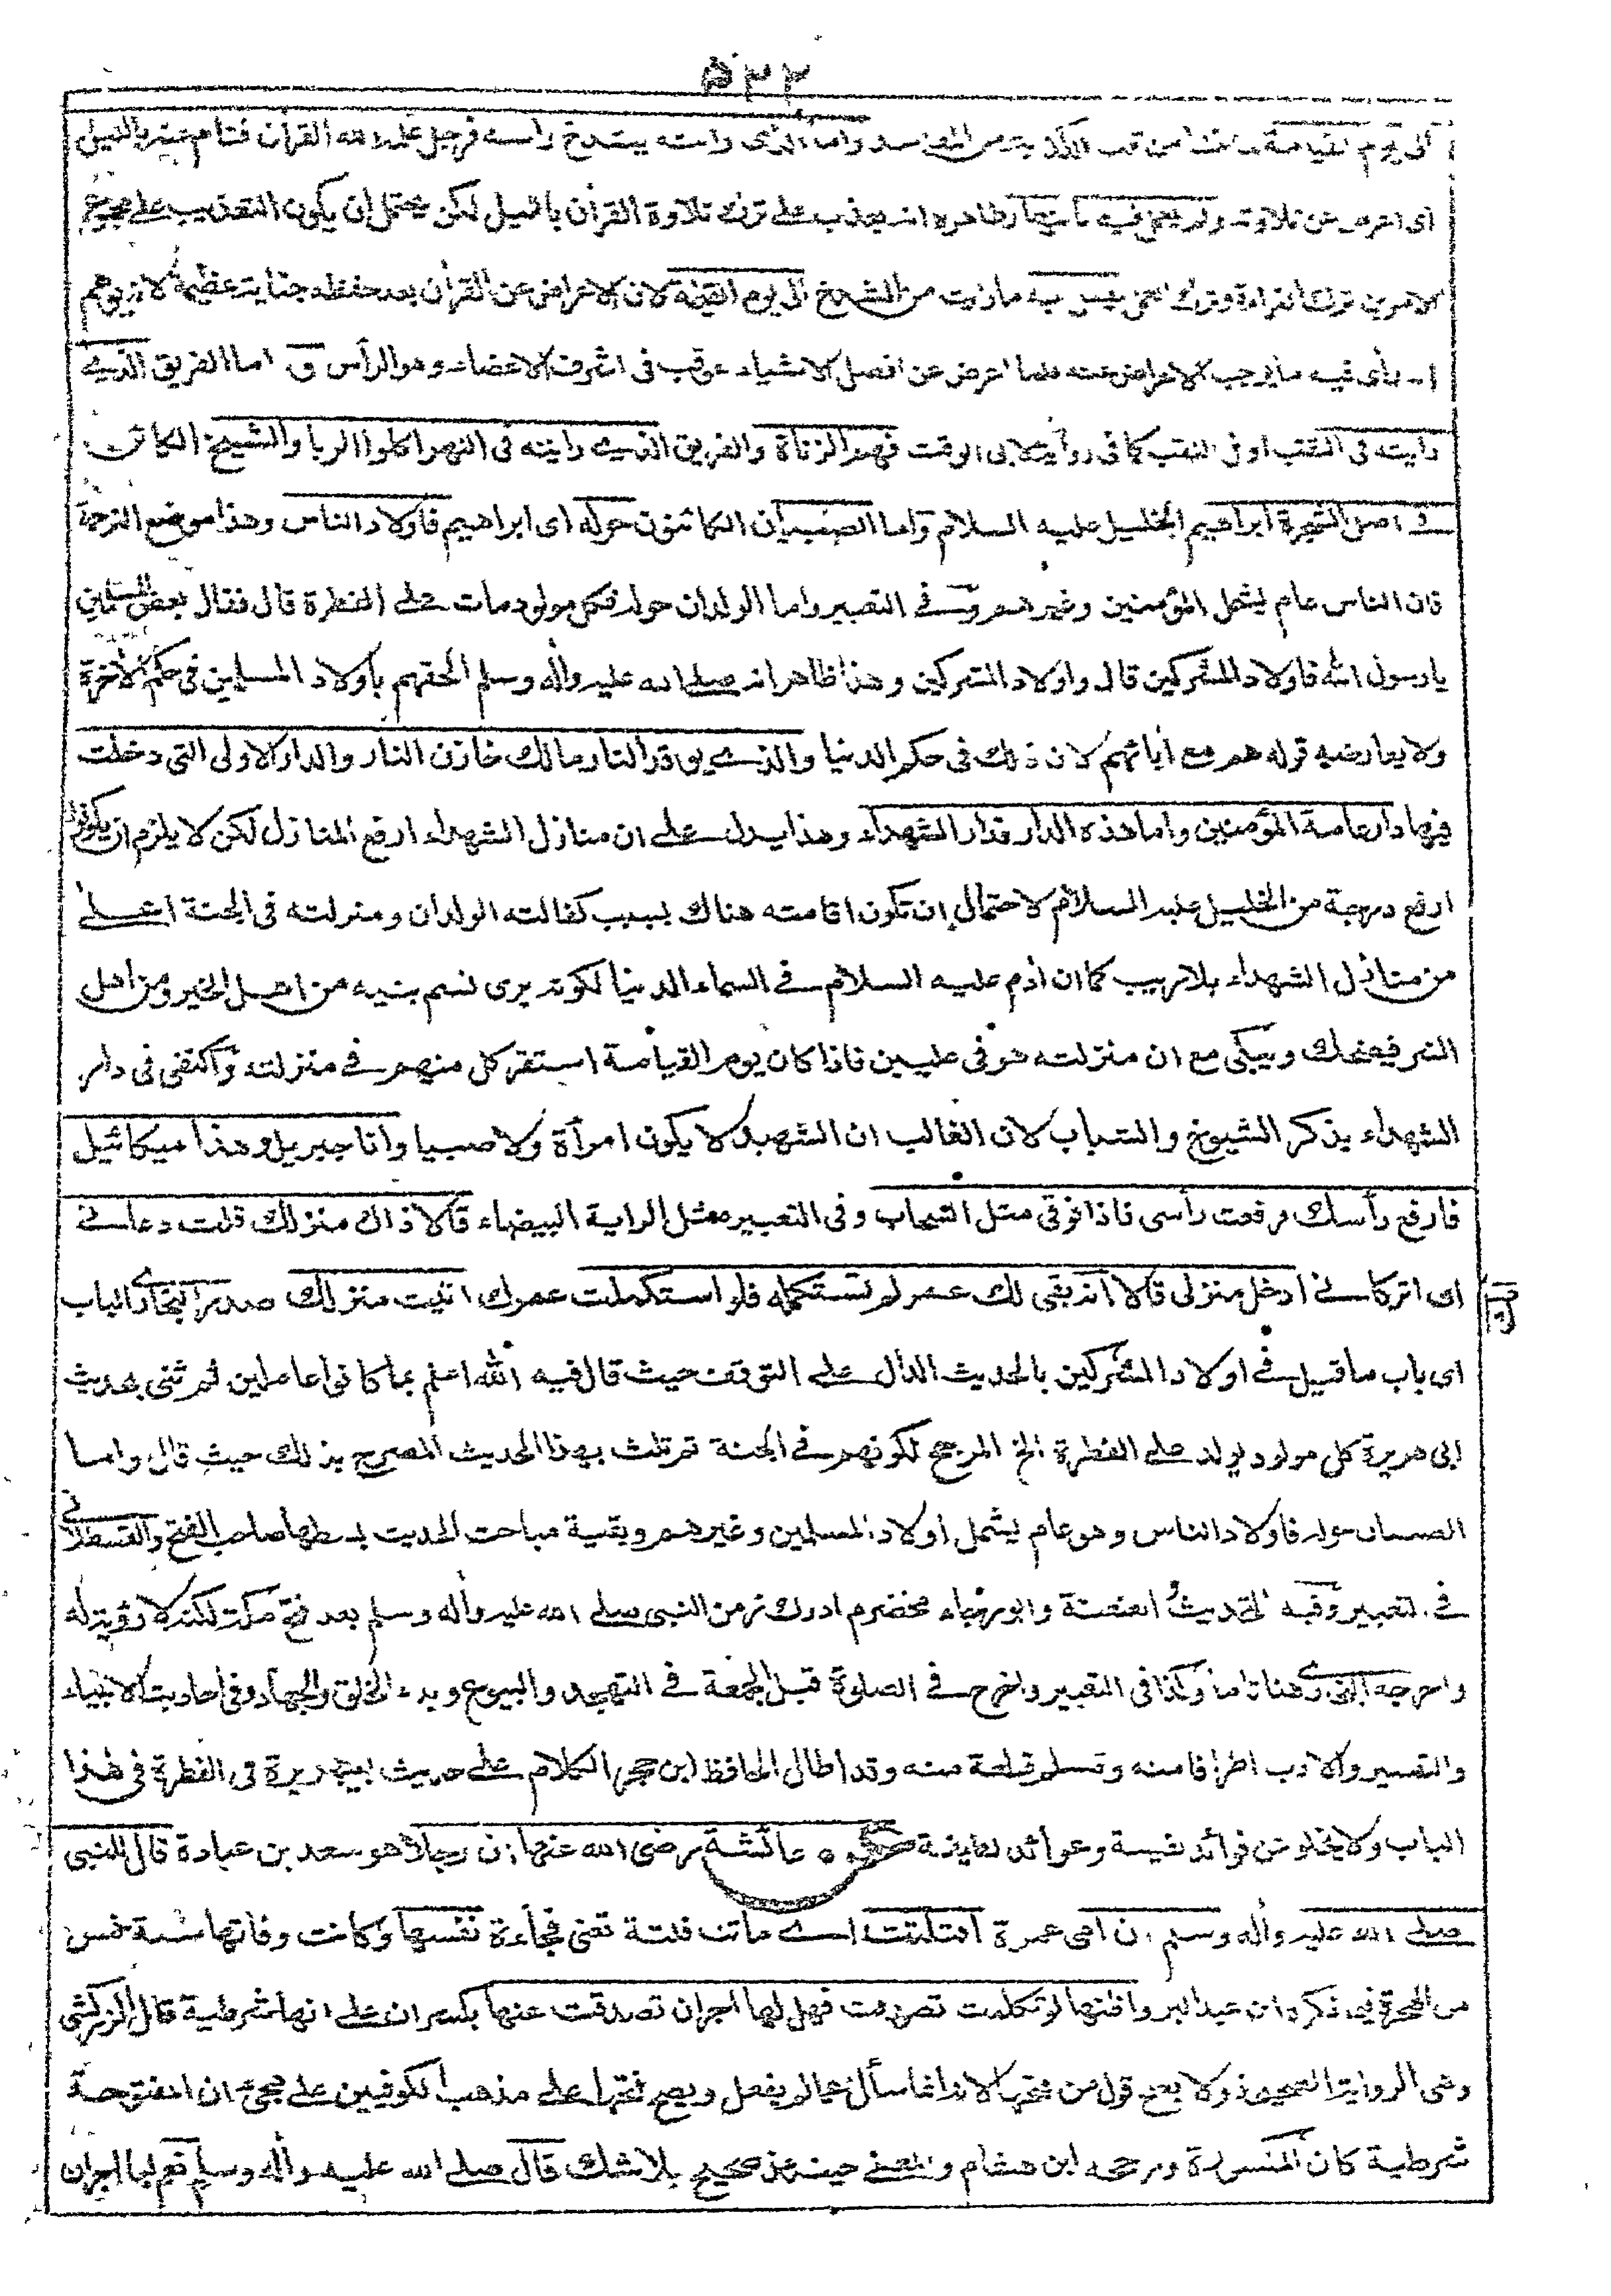 ۵۳۳
الى يوم القيامة من المفاسد واما الذى رايته يشدخ راسه فرجل علمه الله القرآن فنام عنه بالليل
اى اعرض عن تلاوته ولم يعمل فيه بالنهار ظاهره انه يعذب على ترك تلاوة القرآن بالليل لكن يحتمل ان يكون التعذيب على مجموع
الامرين ترك القراءة وترك العمل يفعل به مارايت من الشدخ الى يوم القيمة لان الاعراض عن القرآن بعد حفظه جناية عظيمة لانه يوهم
انه رأى فيه ما يوجب الاعراض عنه فلما اعرض عن افضل الاشياء عوقب فى اشرف الاعضاء وهو الرأس و اما الفريق الذے
رايته فى الثقب او فى النقب كما فى رواية لابى الوقت فهم الزناة والفريق الذے رايته فى النهر اكلوا الربا والشيخ الكائن
فے اصل الشجرة ابراهيم الخليل عليه السلام واما الصبيان الكائنون حوله اى ابراهيم فاولاد الناس وهذا موضع الترجمة
فان الناس عام يشمل المؤمنين وغيرهم وفے التعبير واما الولدان حوله فكل مولود مات على الفطرة قال فقال بعض المسلمين
يا رسول الله فاولاد المشركين قال واولاد المشركين وهذا ظاهر انه صلے الله عليه واله وسلم الحقهم باولاد المسلمين فى حكم الاخرة
ولا يعارضه قوله هم مع آبائهم لان ذلك فى حكم الدنيا والذے يوقد النار مالك خازن النار والدار الاولى التى دخلت
فيها دار عامة المؤمنين واما هذه الدار فدار الشهداء وهذا يدل على ان منازل الشهداء ارفع المنازل لكن لا يلزم ان يكونوا
ارفع درجة من الخليل عليه السلام لاحتمال ان تكون اقامته هناك بسبب كفالته الولدان ومنزلته فى الجنة اعلے
من منازل الشهداء بلا ريب كما ان ادم عليه السلام فے السماء الدنيا لكونه يرى نسم بنيه من اهل الخير ومن اهل
الشر فيضحك ويبكى مع ان منزلته هو فى عليين فاذا كان يوم القيامة استقر كل منهم فے منزلته واكتفى فى دار
الشهداء بذكر الشيوخ والشباب لان الغالب ان الشهيد لا يكون امرأة ولا صبيا وانا جبريل وهذا ميكائيل
فارفع رأسك فرفعت رأسى فاذا فوقى مثل السحاب وفى التعبير مثل الراية البيضاء قالا ذاك منزلك قلت دعانے
اى اتركانے ادخل منزلى قالا انه بقى لك عمر لم تستكمله فلو استكملت عمرك اتيت منزلك صدر البخارى الباب
اى باب ما قيل فے اولاد المشركين بالحديث الدال على التوقف حيث قال فيه الله اعلم بما كانوا عاملين ثم ثنى بحديث
ابى هريرة كل مولود يولد على الفطرة الخ المرجح لكونهم فے الجنة ثم ثلث بهذا الحديث المصرح بذلك حيث قال واما
الصبيان حوله فاولاد الناس وهو عام يشمل اولاد المسلمين وغيرهم وبقية مباحث الحديث بسطها صاحب الفتح والقسطلانى
فے التعبير وفيه التحديث والعنعنة وابو رجاء مخضرم ادرك زمن النبى صلے الله عليه واله وسلم بعد فتح مكة لكنه لا رؤية له
واخرجه البخارى هنا تاما وكذا فى التعبير واخرج فے الصلوة قبل الجمعة فے التهجد والبيوع وبدء الخلق والجهاد وفى احاديث الانبياء
والتفسير والادب اطرافا منه ومسلم قطعة منه وقد اطال الحافظ ابن حجر الكلام على حديث ابى هريرة فى الفطرة فى هذا
الباب ولا يخلو عن فوائد نفيسة وعوائد لطيفة عن عائشة رضى الله عنها ان رجلا هو سعد بن عبادة قال للنبى
صلے الله عليه واله وسلم ان امى عمرة افتلتت اے ماتت فلتة تعنى فجاءة نفسها وكانت وفاتها سنة خمس
من الهجرة فيما ذكره ابن عبد البر واظنها لو تكلمت تصدقت فهل لها اجر ان تصدقت عنها بكسر ان على انها شرطية قال الزركشى
وهى الرواية الصحيحة ولا يصح قول من فتحها لانه انما سأل عما لم يفعل ويصح فتحها على مذهب الكوفيين على مجئ ان المفتوحة
شرطية كان المكسورة ورجحه ابن هشام والمعنے حينئذ صحيح بلا شك قال صلے الله عليه واله وسلم نعم لها اجر ان